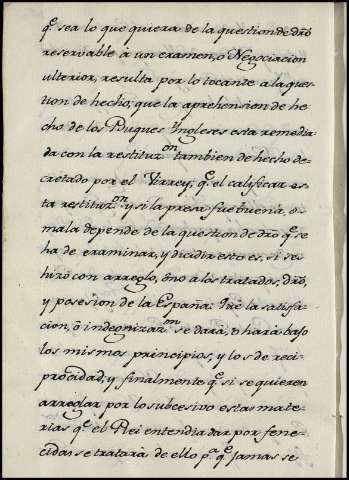 qᵉ. sea lo que quiera de la question de dr̃o
reservable à un examen, o Negociacion
ulterior, resulta por lo tocante a la ques-
tion de hecho, que la aprehension de he
cho de los Buques Ingleses esta remedia-
da con la restituzᵒⁿ tambien de hecho de-
cretado por el Virrey, qᵉ el calificar es-
ta restituzᵒⁿ y si la presa fue buena, o
mala depende de la question de dr̃o qᵉ se
ha de examinar, y dicidir esto es, si se
hizo con arreglo, ò no a los tratados, dr̃o,
y posesion de la España. Que la satisfa-
cion, ò indegnizazᵒⁿ se dará, o hará bajo
los mismos principios, y los de reci-
procidad, y finalmente qᵉ si se quieren
arreglar por lo subcesivo estas mate-
rias qᵉ el Rei entendia dar por fene-
cidas se tratará de ello pᵃ qᵉ jamas se